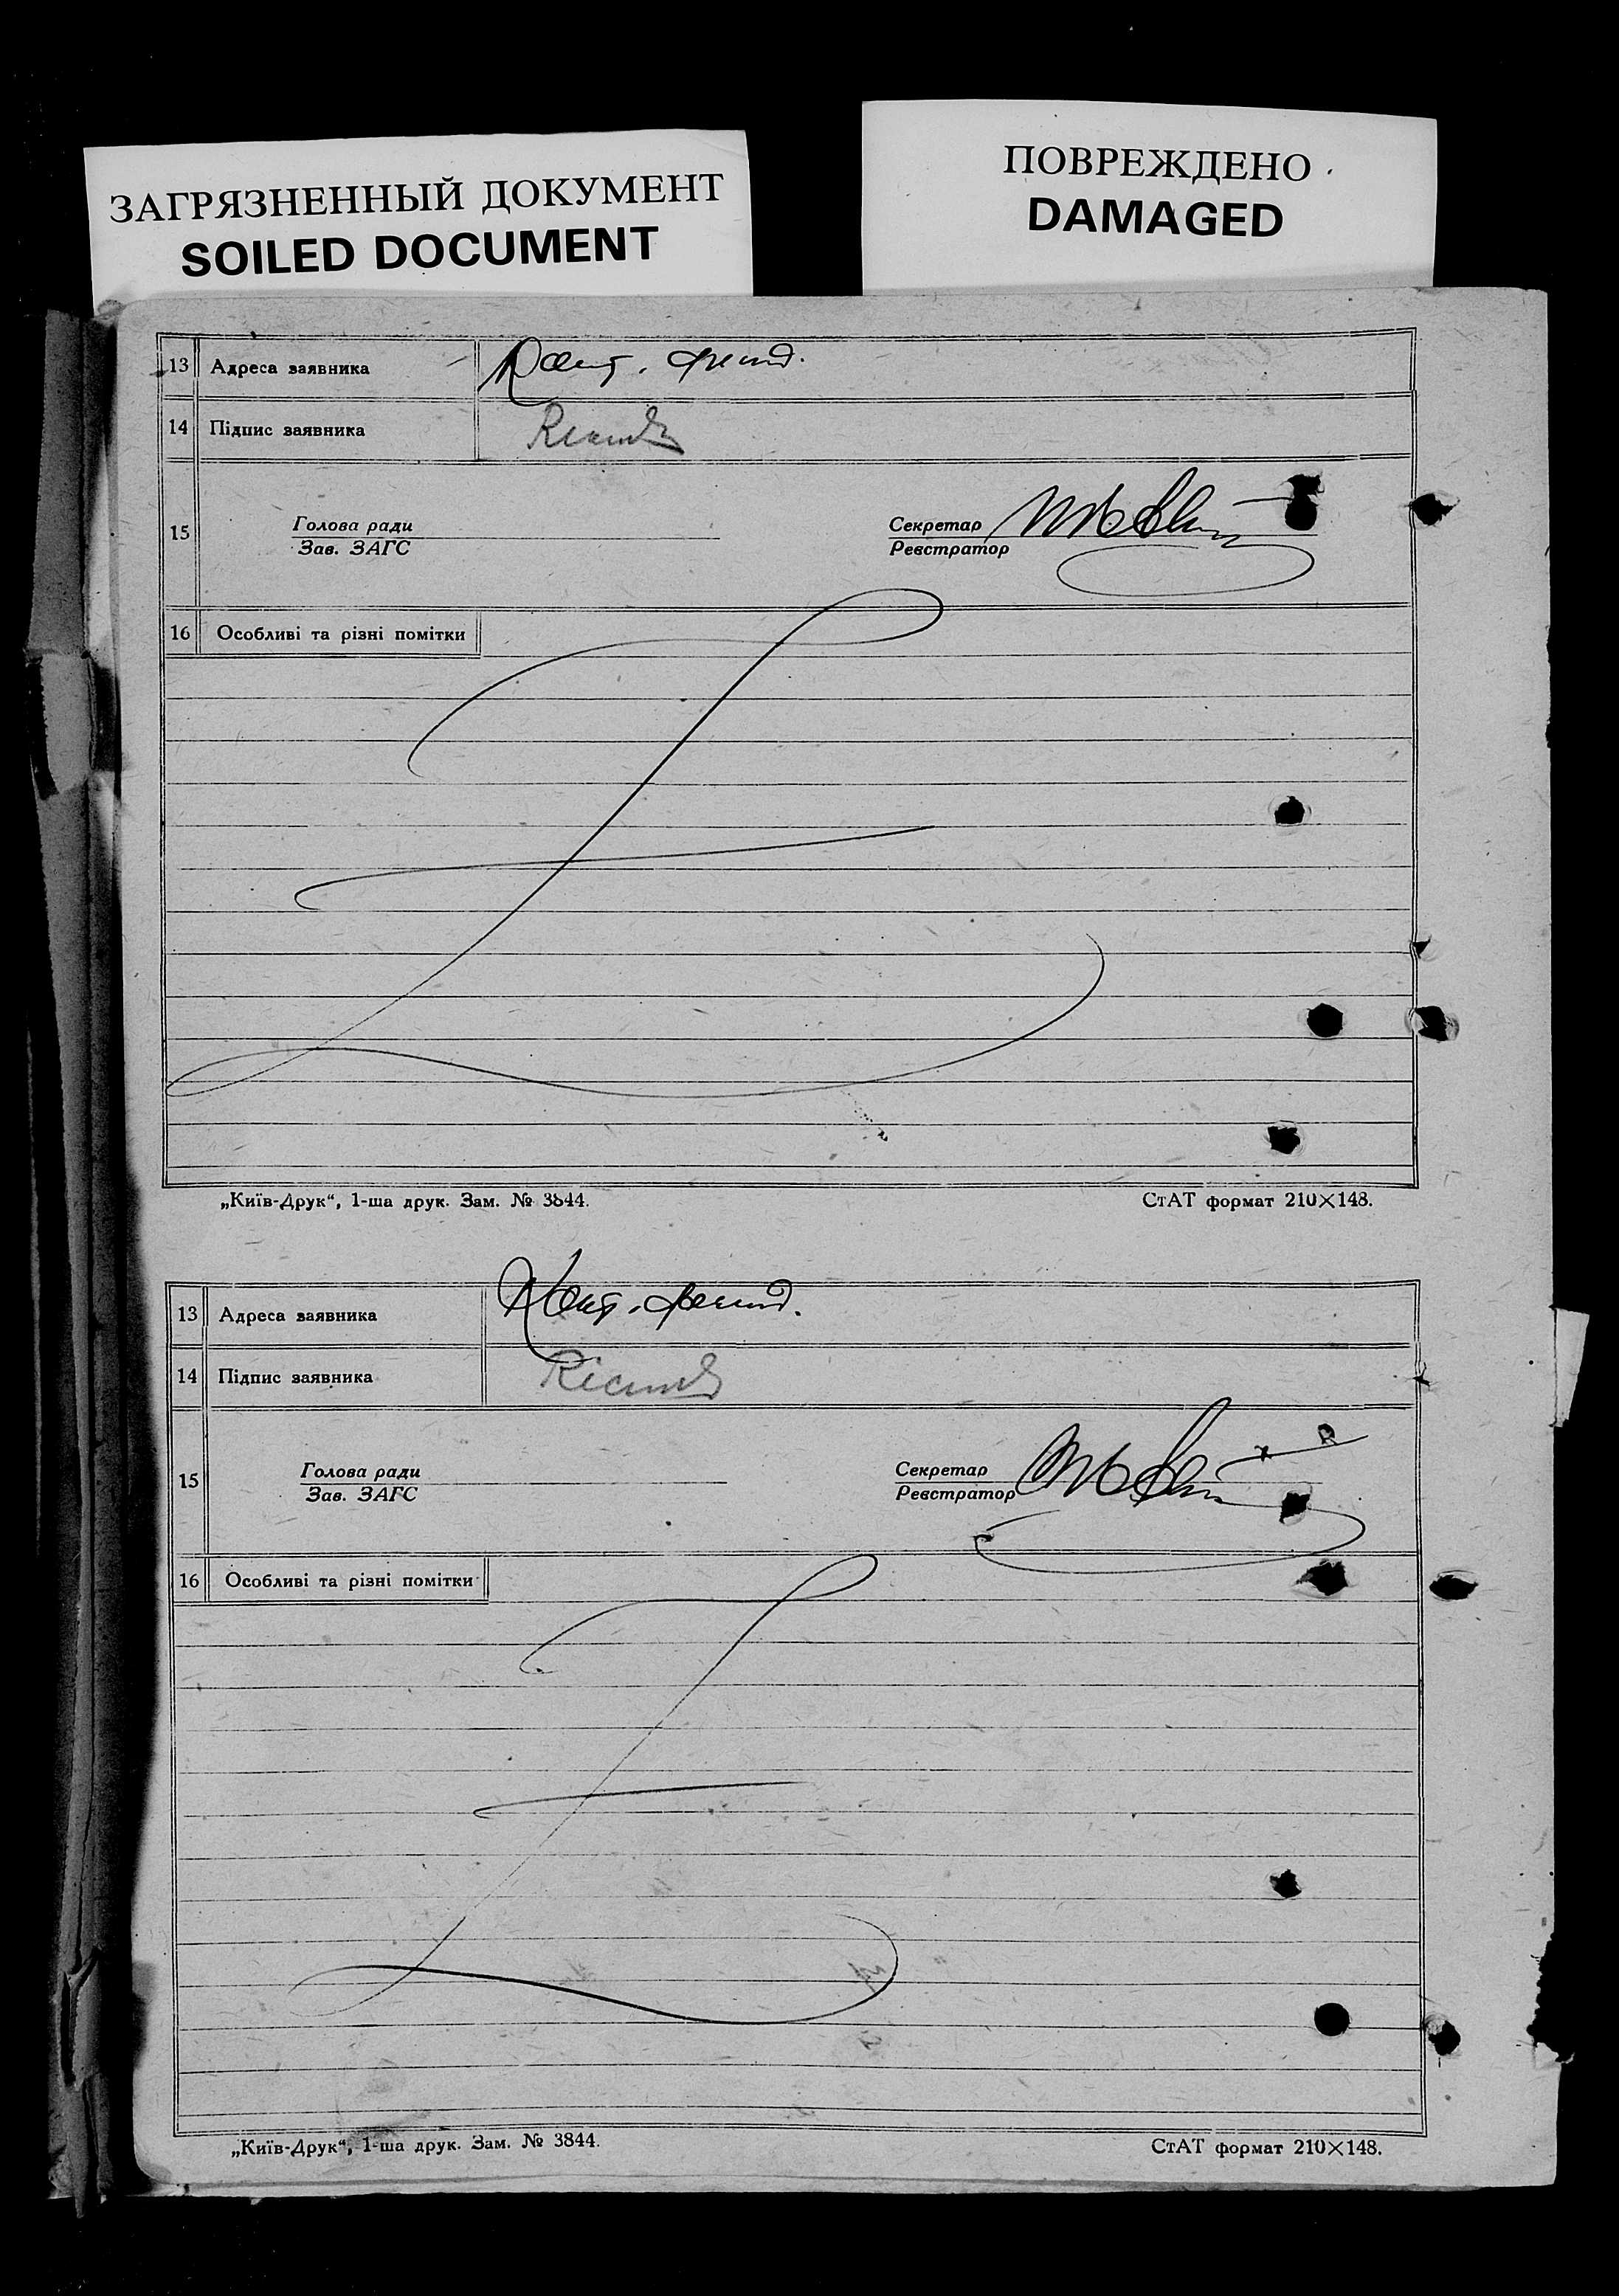 ЗАГРЯЗНЕННЫЙ ДОКУМЕНТ
SOILED DOCUMENT
ПОВРЕЖДЕНО
DAMAGED
13 Адреса заявника
14 Підпис заявника
15 Голова ради Секретар
Зав. ЗАГС Реєстратор
16 Особливі та різні помітки
„Київ-Друк“, 1-ша друк. Зам. № 3844. СтАТ формат 210×148.
13 Адреса заявника
14 Підпис заявника
15 Голова ради Секретар
Зав. ЗАГС Реєстратор
16 Особливі та різні помітки
„Київ-Друк“, 1-ша друк. Зам. № 3844. СтАТ формат 210×148.